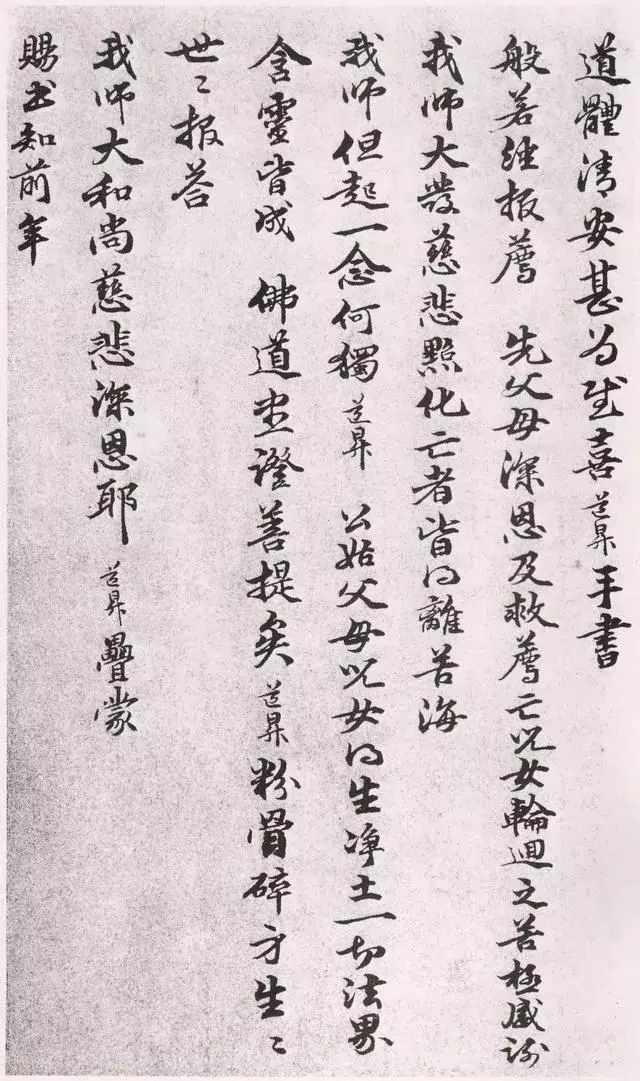 道體清安甚为慰喜道昇手書
般若經报薦 先父母深恩及救薦亡兒女輪迴之苦極感謝
我師大發慈悲點化亡者皆得離苦海
我師但起一念何獨道昇 公姑父母兒女得生净土一切法界
含靈皆成 佛道坐證菩提矣道昇粉骨碎身生〻
世〻报答
我師大和尚慈悲深恩耶 道昇疊蒙
賜书知前年